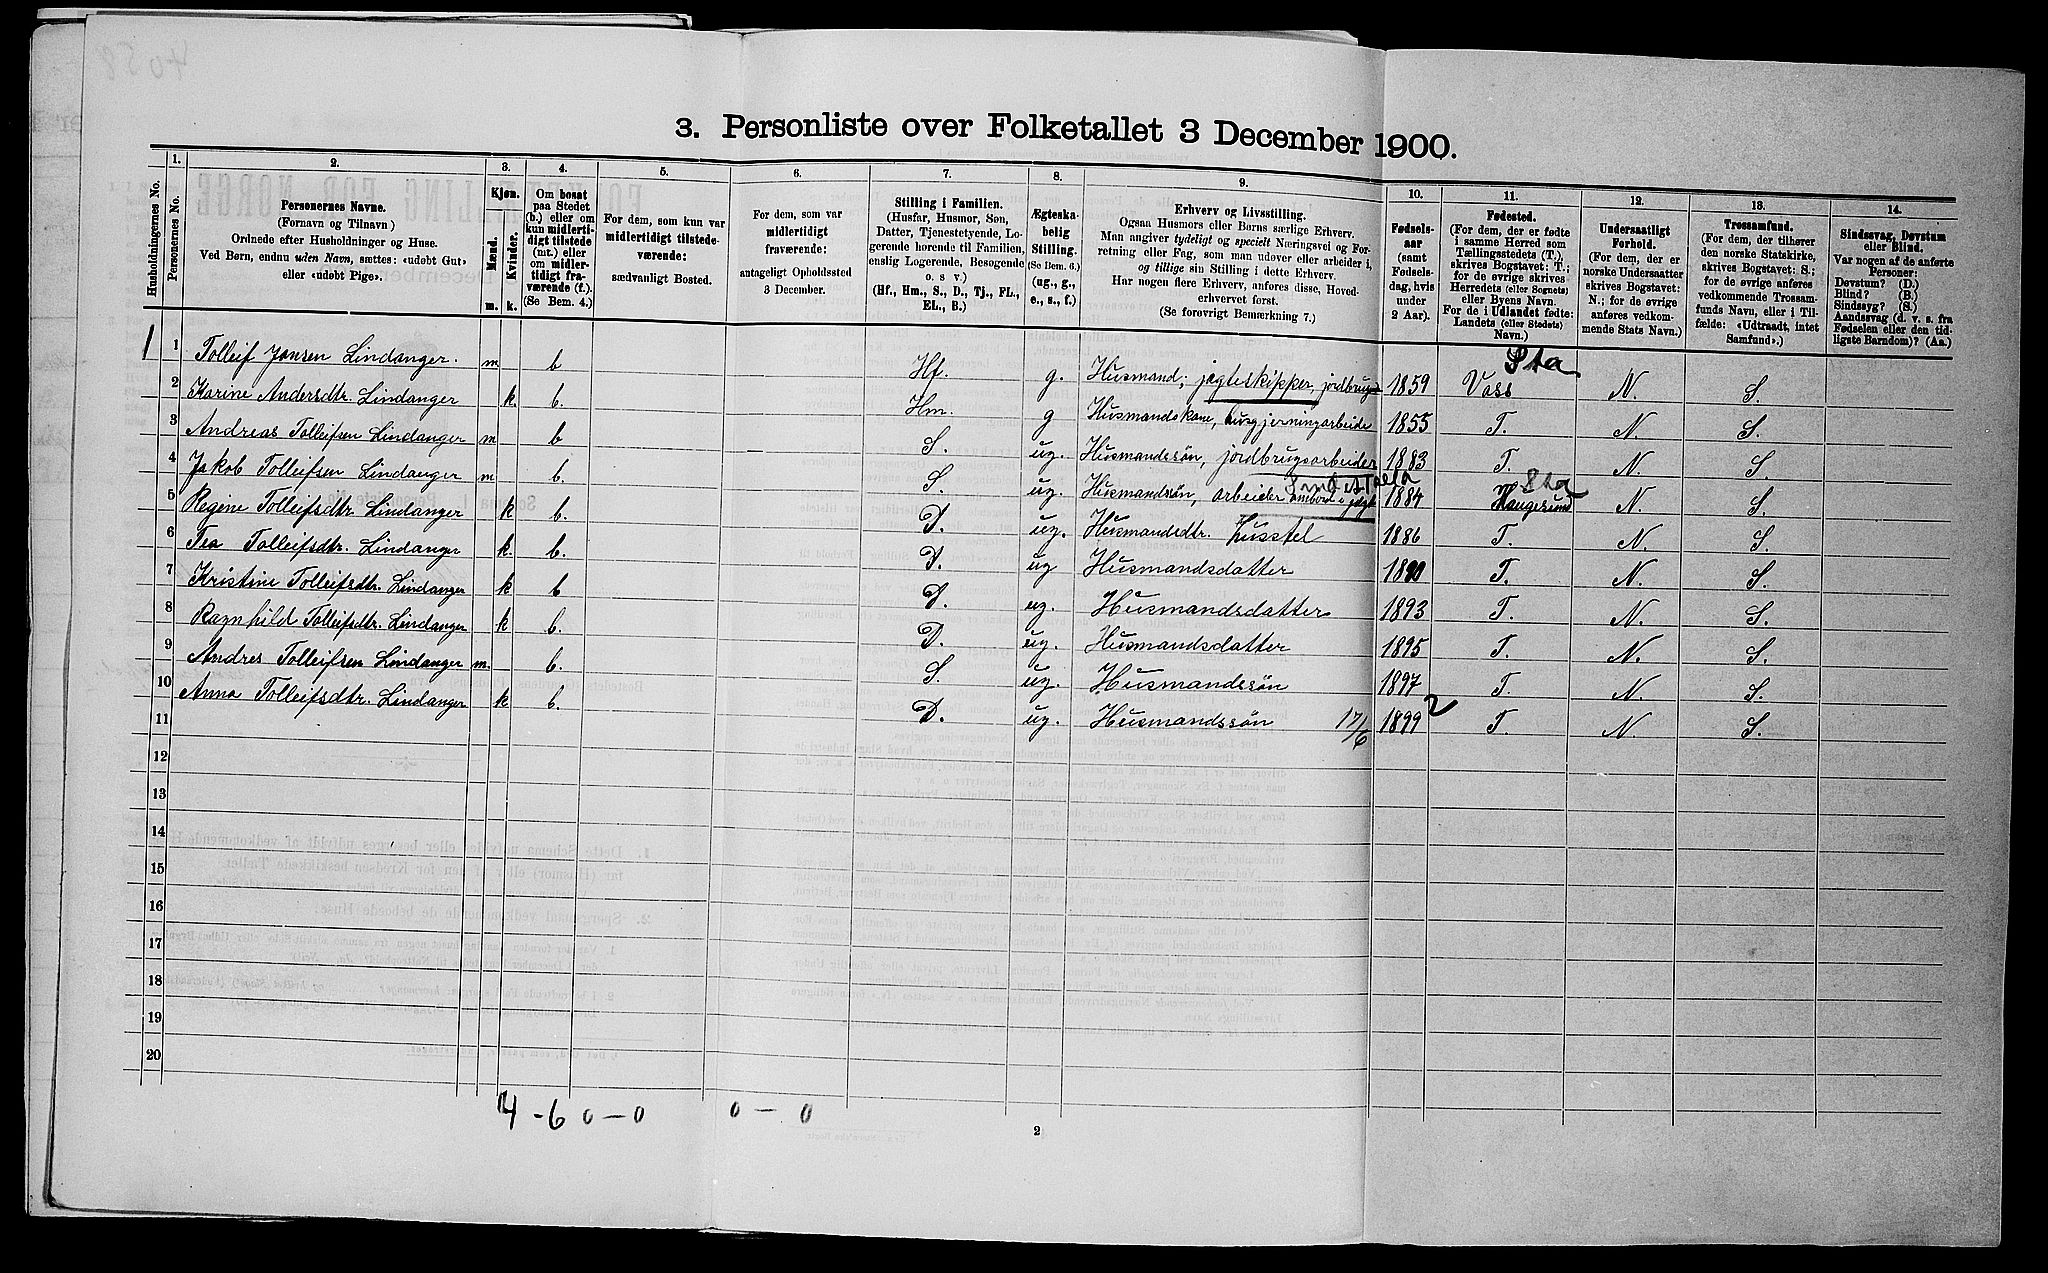 3. Personliste over Folketallet 3 December 1900.
1. 2. 3. 4. 5. 6. 7. 8. 9. 10. 11. 12. 13. 14.
Husholdningernes No.
Personernes No.
Personernes Navne.
(Fornavn og Tilnavn)
Ordnede efter Husholdninger og Huse.
Ved Børn, endnu uden Navn, sættes: «udøbt Gut»
eller «udøbt Pige».
Kjøn.
Mænd.
Kvinder.
m. k.
Om bosat
paa Stedet
(b.) eller om
kun midlerti-
digt tilstede
(mt.) eller
om midler-
tidigt fra-
værende (f.).
(Se Bem. 4.)
For dem, som kun var
midlertidigt tilstede-
værende:
sædvanligt Bosted.
For dem, som var
midlertidigt
fraværende:
antageligt Opholdssted
3 December.
Stilling i Familien.
(Husfar, Husmor, Søn,
Datter, Tjenestetyende, Lo-
gerende hørende til Familien,
enslig Logerende, Besøgende
o. s. v.)
(Hf., Hm., S., D., Tj., FL.,
EL., B.)
Ægteska-
belig
Stilling.
(Se Bem. 6.)
(ug., g.,
e., s., f.)
Erhverv og Livsstilling.
Ogsaa Husmors eller Børns særlige Erhverv.
Man angiver tydeligt og specielt Næringsvei og For-
retning eller Fag, som man udøver eller arbeider i,
og tillige sin Stilling i dette Erhverv.
Har nogen flere Erhverv, anføres disse, Hoved-
erhvervet først.
(Se forøvrigt Bemærkning 7.)
Fødsels-
aar
(samt
Fødsels-
dag, hvis
under
2 Aar).
Fødested.
(For dem, der er fødte
i samme Herred som
Tællingsstedets (T.),
skrives Bogstavet: T.;
for de øvrige skrives
Herredets (eller Sognets)
eller Byens Navn.
For de i Udlandet fødte:
Landets (eller Stedets)
Navn.)
Undersaatligt
Forhold.
(For dem, der er
norske Undersaatter
skrives Bogstavet:
N.; for de øvrige
anføres vedkom-
mende Stats Navn.)
Trossamfund.
(For dem, der tilhører
den norske Statskirke,
skrives Bogstavet: S.;
for de øvrige anføres
vedkommende Trossam-
funds Navn, eller i Til-
fælde: «Udtraadt, intet
Samfund».)
Sindssvag, Døvstum
eller Blind.
Var nogen af de anførte
Personer:
Døvstum? (D.)
Blind? (B.)
Sindssyg? (S.)
Aandssvag (d. v. s. fra
Fødselen eller den tid-
ligste Barndom)? (Aa.)
Sta
1 1 Tolleif Jansen Lindanger. m b Hf. g. Husmand; jagteskipper, jordbrug 1859 Voss N. S.
2 Karine Andersdtr. Lindanger k. b. Hm. g Husmandskone, husgjerningarbeide 1855 T. N. S.
3 Andreas Tolleifsen Lindanger m b S. ug. Husmandssøn, jordbrugsarbeider 1883 T. N. S.
Sta
4 Jakob Tolleifsen Lindanger m b. S. ug. Husmandssøn, arbeider ombord i jagt 1884 Haugesund N. S.
5 Regine Tolleifsdtr. Lindanger k b. D. ug. Husmandsdtr. husstel 1886 T. N. S.
6 Tea Tolleifsdtr. Lindanger k. b. D. ug Husmandsdatter 1890 T. N. S.
7 Kristine Tolleifsdtr. Lindanger k b D. ug. Husmandsdatter 1893 T. N. S.
8 Ragnhild Tolleifsdtr. Lindanger k b. D. ug. Husmandsdatter 1895 T. N. S.
9 Andres Tolleifsen Lindanger m. b. S. ug. Husmandssøn 1897 T. N. S.
10 Anna Tolleifsdtr. Lindanger k b. D. ug. Husmandssøn 17/6 1899 2 T. N. S.
11
12
13
14
15
16
17
18
19
20
4 - 6 0 - 0 0 - 0
2